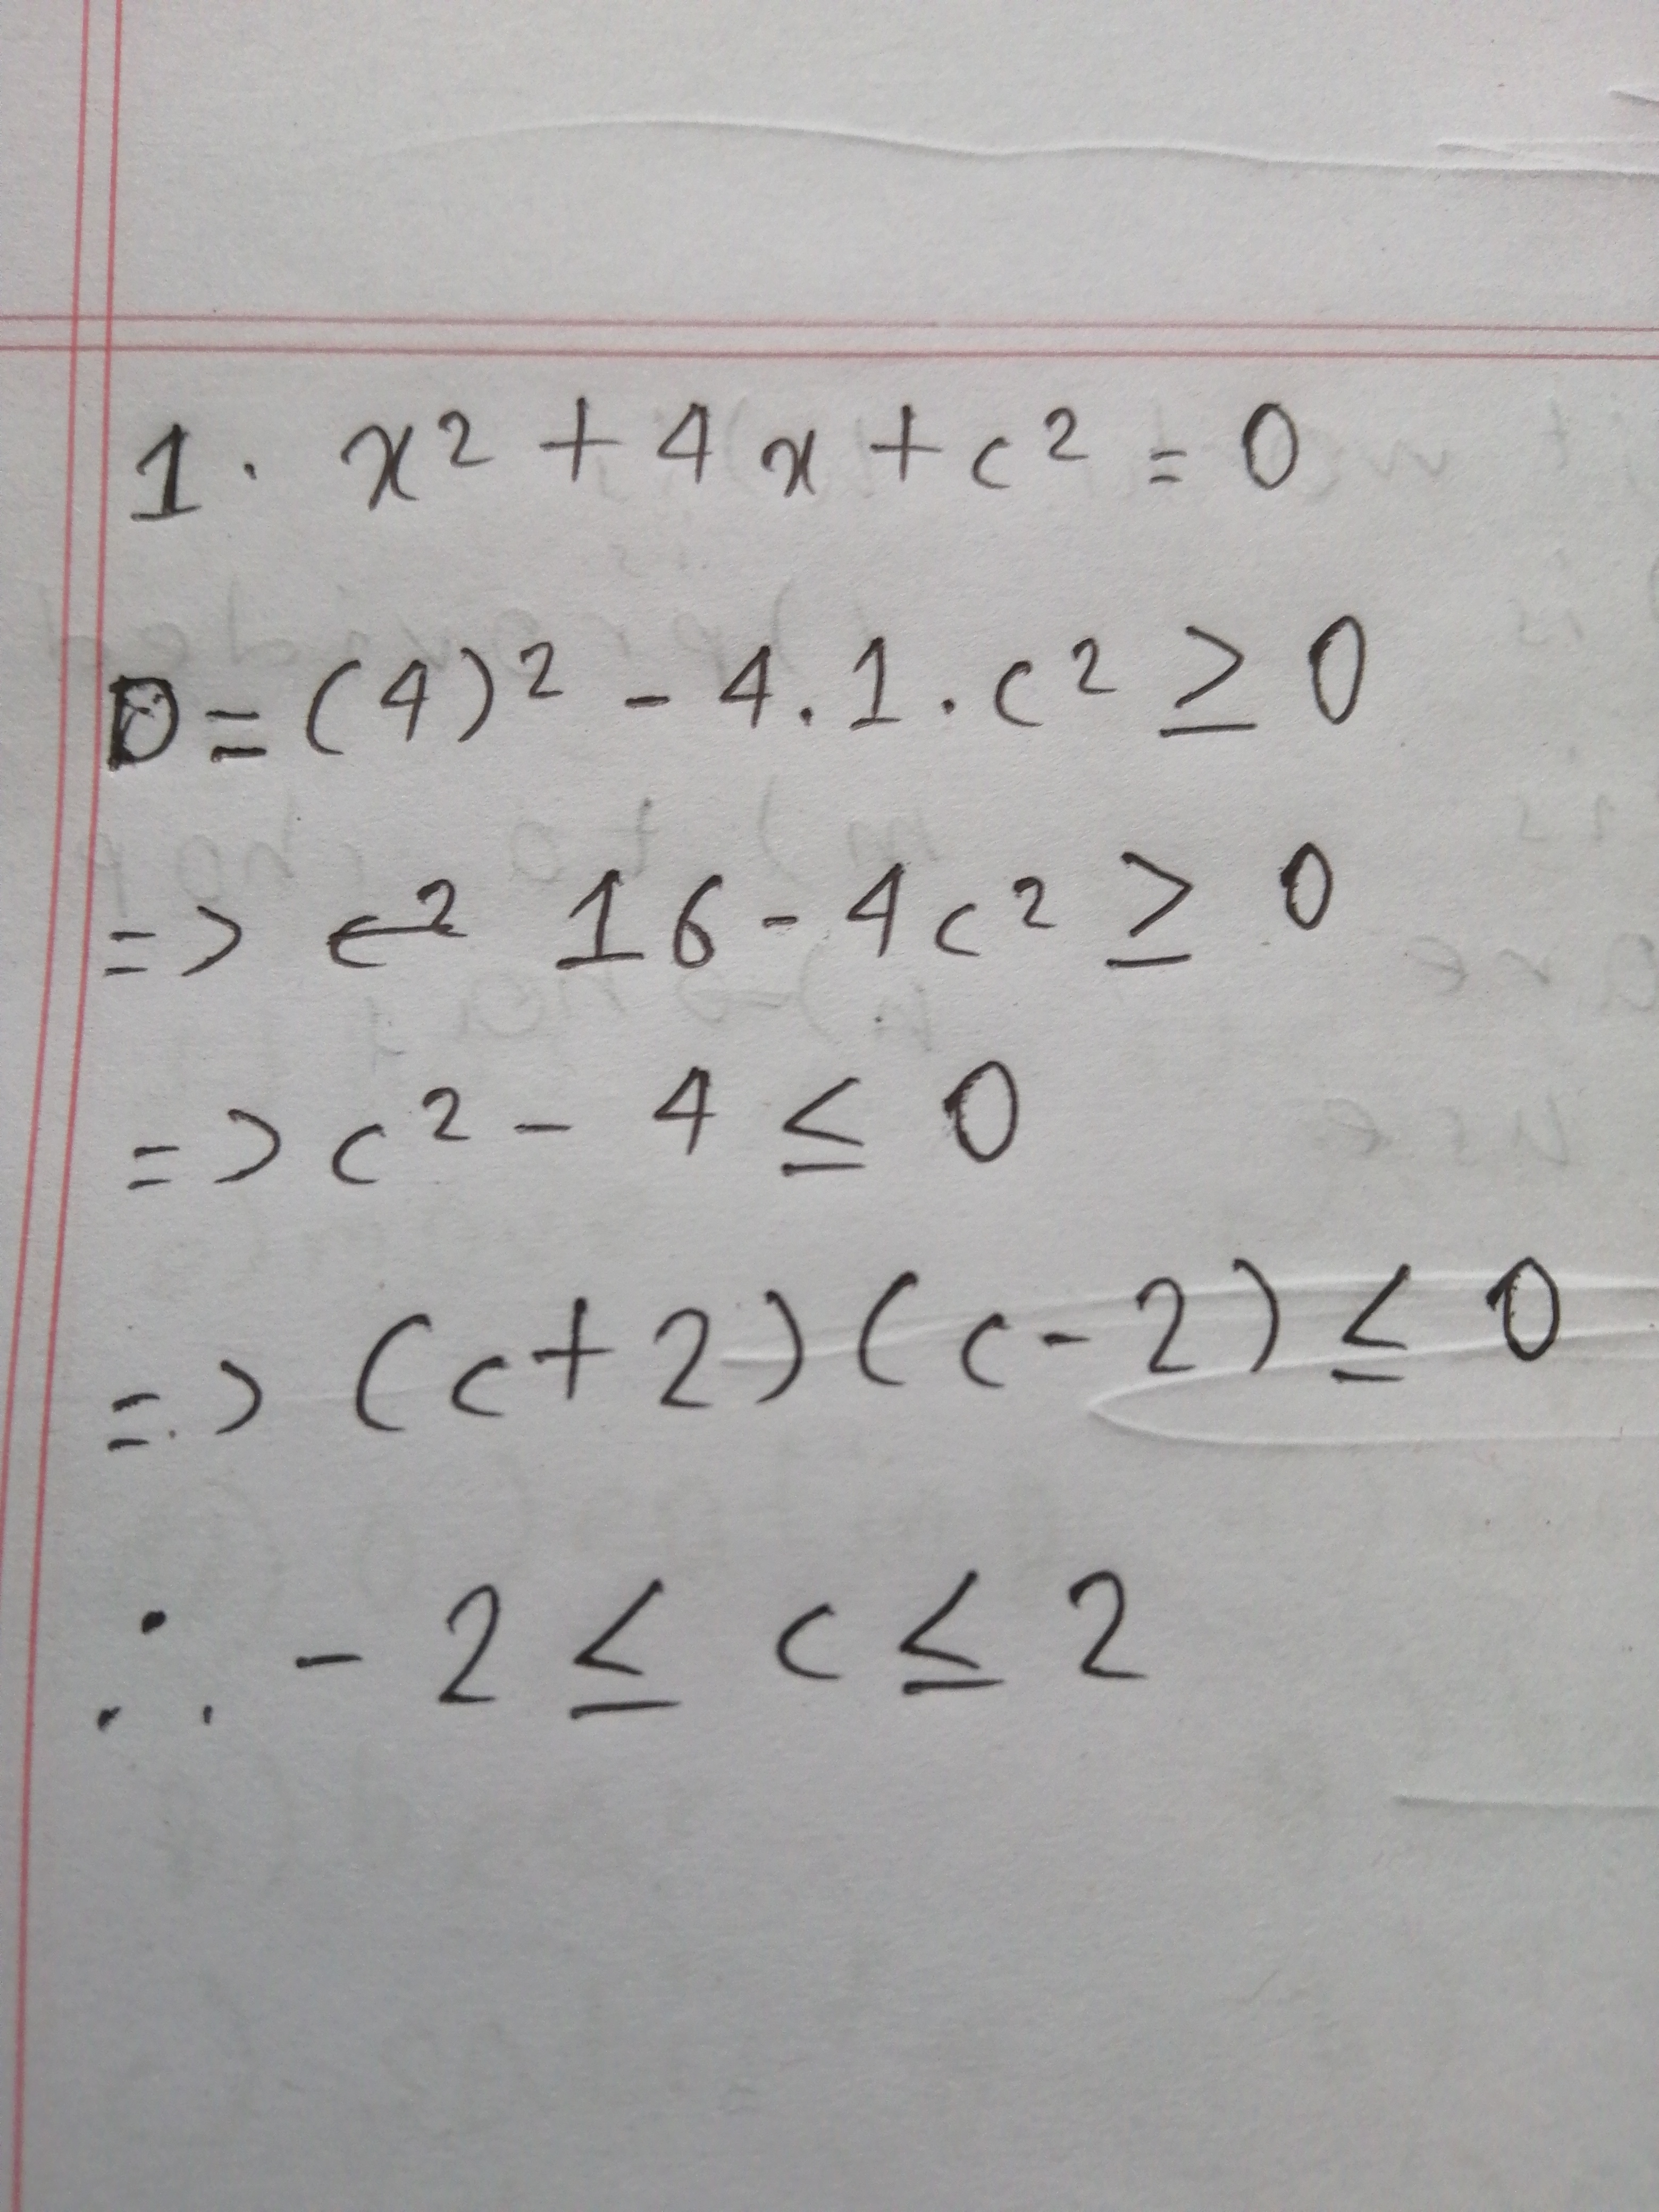 1. x² + 4x + c² = 0
D = (4)² - 4.1.c² ≥ 0
=> 16 - 4c² ≥ 0
=> c² - 4 ≤ 0
=> (c+2)(c-2) ≤ 0
∴ -2 ≤ c ≤ 2